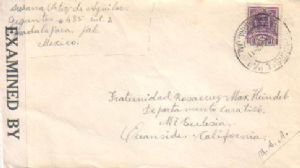 Susana Ortiz de Aguilar
Gigantes # 435 int 2
Guadalajara Jal
Mexico.
EXAMINED BY
Fraternidad Rosacruz Max Heindel
Departamento Curativo
Mt Ecclesia
Oceanside California
U. S. A.